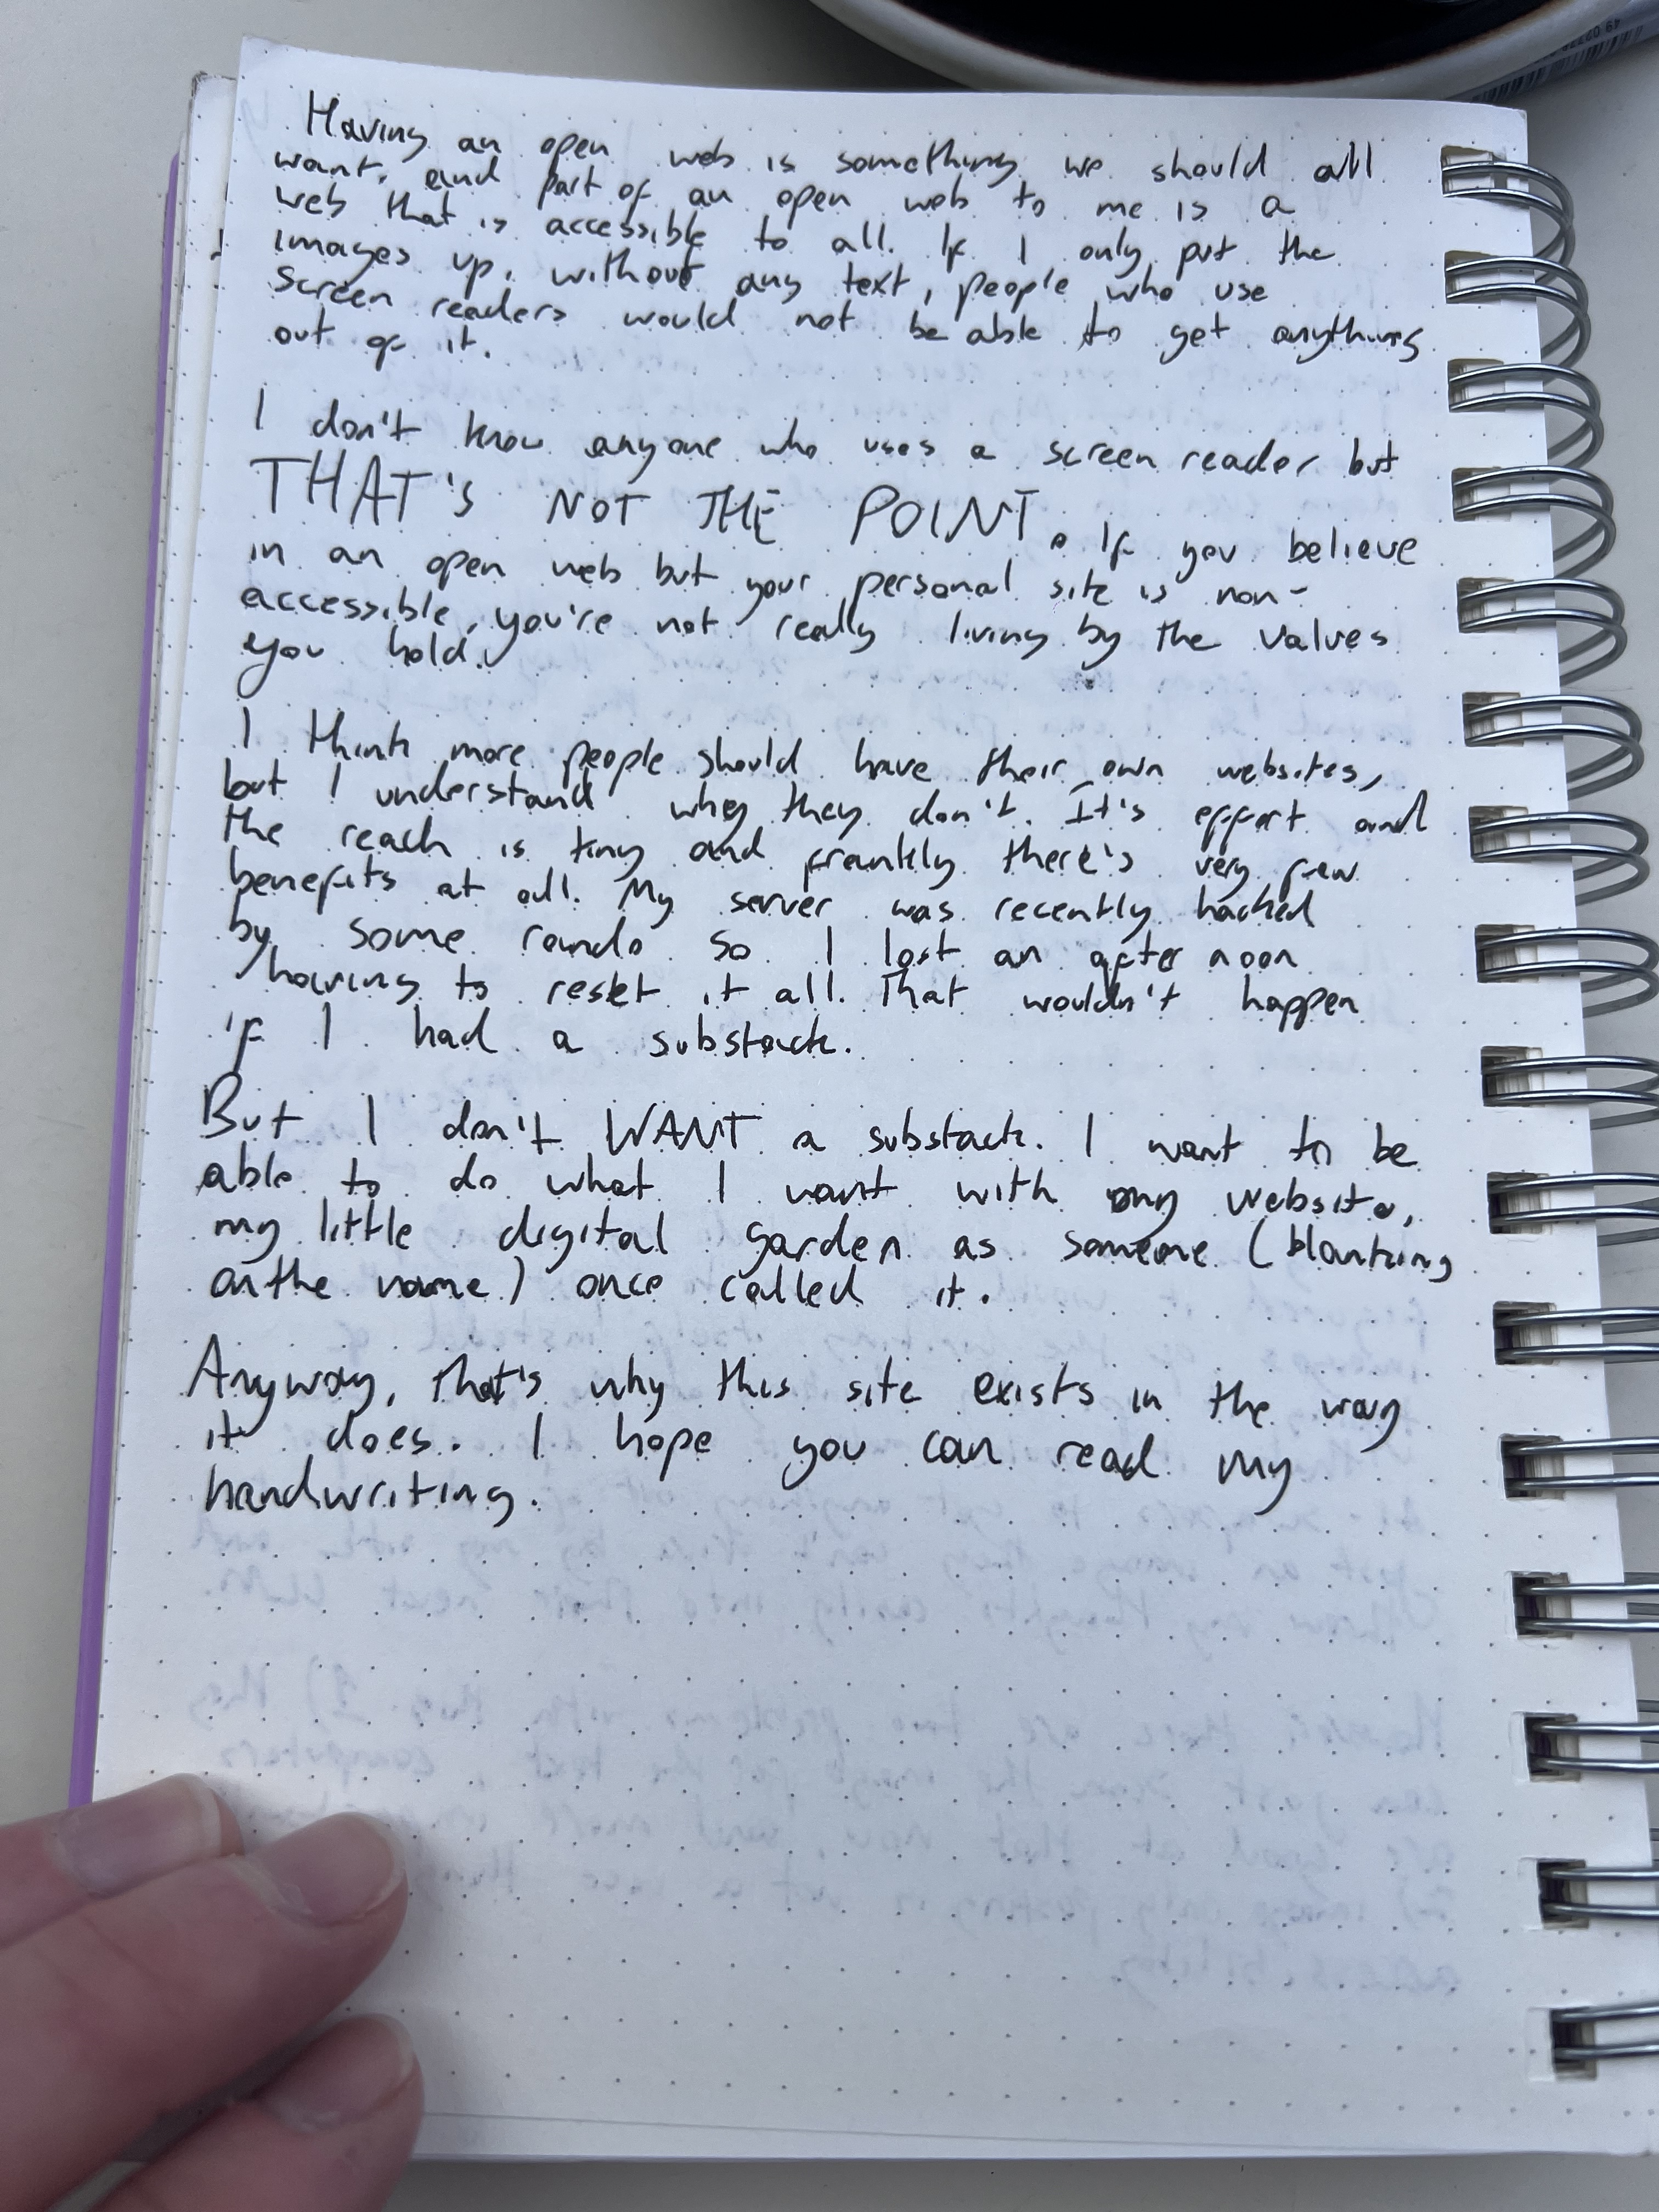 Having an open web is something we should all
want, and part of an open web to me is a
web that is accessible to all. If I only put the
images up, without any text, people who use
screen readers would not be able to get anything
out of it.
I don't know anyone who uses a screen reader but
THAT'S NOT THE POINT. If you believe
in an open web but your personal site is non-
accessible, you're not really living by the values
you hold.
I think more people should have their own websites,
but I understand why they don't. It's effort and
the reach is tiny and frankly there's very few
benefits at all. My server was recently hacked
by some rando so I lost an afternoon
having to reset it all. That wouldn't happen
if I had a substack.
But I don't WANT a substack. I want to be
able to do what I want with my website,
my little digital garden as someone (blanking
on the name) once called it.
Anyway, that's why this site exists in the way
it does. I hope you can read my
handwriting.